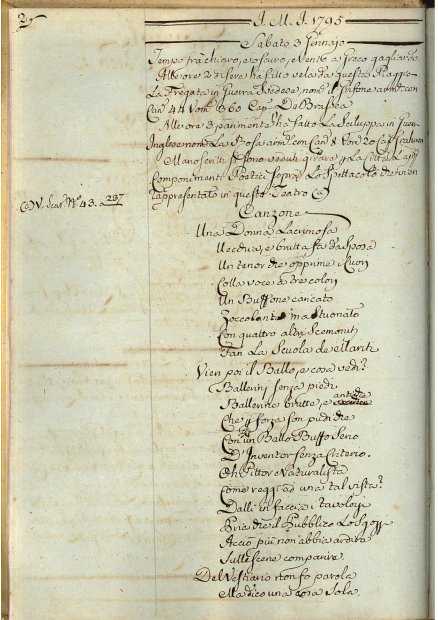 2
J. M. J. 1795
Sabato 3 Gennajo
Tempo frà chiaro, e oscuro, e vento a Greco gagliardo
Alle ore 2 di sera ha fatto vela da queste Piagge
La Fregata in Guerra Svedese, nom.
Can. 44 Uom. 360 Cap.
Alle ore 3 parimente ha fatto La
Inglese nom. La Rosa arm. con Can. 8 Uom. 20 Cap. Graham
Manoscritti si sono veduti girare p. La Città
Componimenti Poetici sopra Lo Spettacolo
rappresentato in questo Teatro
N.º 43. a 237
Canzone
Una Donna Lacrimosa
Vecchia, e brutta fà da sposa
Un tenor che opprime i Cuori
Colla voce a tre colori
Un Buffone caricato
Zoccolante ma stuonato
Con quattro altri Scemoniti
Fan La Scuola de
Vien poi il Ballo, e cosa vedi?
Ballerini senza piedi
Ballerine brutte, e
Che p forza fon
Con un Ballo Buffo Serio
D'Inventor senza criterio.
Oh Pittor e Naturalista
Come reggi ad una tal vista?
Dalli in faccia i
Pria che il Pubblico Lo
Acciò più non abbia ardire
Sulle scene comparire
Del Vestiario non fo parola
Ma dico una cosa sola.